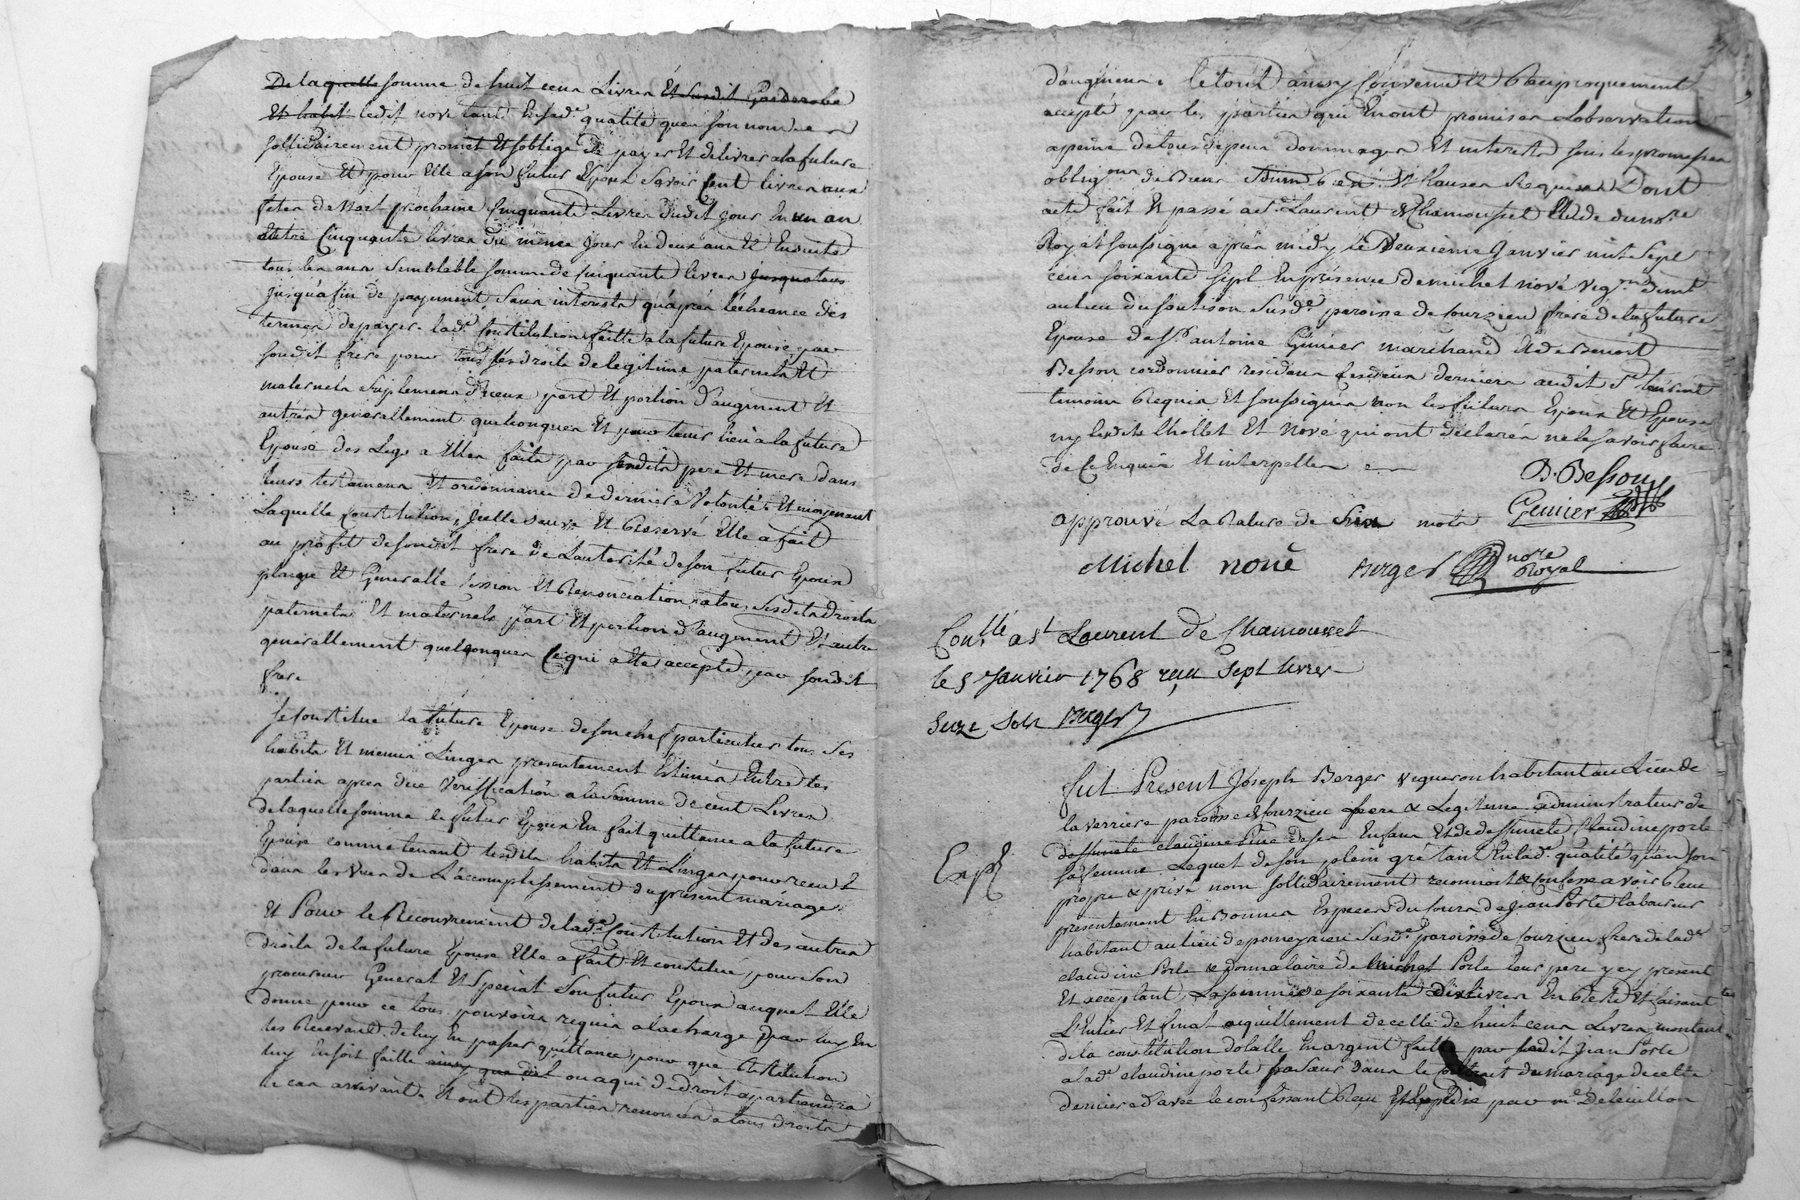 De laquelle somme de huit cens Livres Et susdit Garderobe
Et habit ledit nové tant Esd. qualité qu'en son nom
sollidairement promet Et soblige de payer Et delivrer a la future
Epouse Et pour Elle a son futur Epoux Savoir Cent livres aux
fetes de Noel prochaine Cinquante Livres dudit jour En un an
autre Cinquante livres du même jour En deux ans Et Ensuite
tous les ans Semblable somme de Cinquante livres jusqua tous
jusqu'a fin de payement Sans interests qu'après l'écheance des
termes de payer lad.e Constitution faitte a la future Epouse par
sondit frere pour tous ses droits de legitime paternels Et
maternels suplemens d'iceux part Et portion d'augment Et
autres generallement quelconques Et pour tenir lieu a la future
Epouse des Legs a Elle faits par sesdits pere Et mere dans
leurs testamens Et ordonnance de derniere Volonté Et moyenant
Laquelle Constitution, Icelle sauve Et Reservé Elle a fait
au profit de sondit frere de L'autorité de son futur Epoux
plaine Et Generalle Cession Et Renonciation a tous Sesdits droits
paternels Et maternels part Et portion d'augment Et autre
generallement quelconques Ce qui a Eté accepté par sondit
frere
Se Constitue la future Epouse de son chef particulier tous Ses
habits Et menus Linges presentement Estimés Entre les
parties apres due Veriffication a la Somme de cent Livres
de laquelle somme le futur Epoux En fait quittance a la future
Epouse comme tenant lesdits habits Et Linges pour receu
dans les Vues de L'accomplissement du present mariage.
Et Pour le Recouvrement de lad.e Constitution Et des autres
droits de la future Epouse Elle a fait Et constitué pour Son
procureur General Et Special Son futur Epoux auquel Elle
donne pour ce tous pouvoirs requis a la charge par luy En
les Recevant de luy En passer quittance pour que Restitution
luy En soit faitte ainsy que dit ou a qui de droit apartiendra
le cas arrivant. Et ont les parties renoncé a tous droits
d'augmens le tout ainsy Convenu Et Reciproquement
accepté par les parties qui En ont promis L'observation
a peine de tous depens dommages Et interests sous les promesses
oblig.on de Biens Et Clauses Requises Dont
acte fait Et passé a S.t Laurent de Chamousset Etude du no.re
Royal soussigné après midy le deuxieme Janvier mil Sept
cens soixante huit En présence de michel nové vig.on dem.t
au lieu du susd.e paroisse de Courzieu frere de la future
Epouse de S.r antoine Génier marchand Et de Benoist
Besson cordonnier residens Ces deux derniers audit S.t laurent
temoins Requis Et soussignés non les futurs Epoux Et Epouse
ny lesdits Chollet Et Nové qui ont déclarés ne le savoir faire
de Ce Enquis Et interpellés
B. Besson
Genier
approuvé La Rature de Six mots
Michel nové Berger no.re Royal
Con.llé a S.t Laurent De Chamousset
le 5 Janvier 1768 reçu Sept livres
Seize Sols Berger
Fut Present Joseph Berger vigneron habitant au Lieu de
la verriere paroisse de Courzieu pere & Legitime administrateur de
ses Enfans Et de deffunte Claudine porte
sa femme Lequel de son plein gré tant En lad.e qualité qu'en son
Exp.
propre & privé nom sollidairement reconnoit & confesse avoir Receu
presentement En Bonnes Especes du Cours de Jean Porte laboureur
habitant au lieu de pomeyrieu Susd.e paroisse de Courzieu frere de lad.e
claudine Porte & donnataire de michel Porte leur pere y cy present
Et acceptant, La somme de soixante dix livres En Reste Et faisant
L'Entier Et final aquittement de celle de huit cens Livres montant
de la constitution dotalle En argent faitte par ledit Jean Porte
a lad.e claudine porte sa sœur dans le contrat de mariage de cette
derniere d'avec le confessant Reçu Et Expedié par m.e Deleuillon